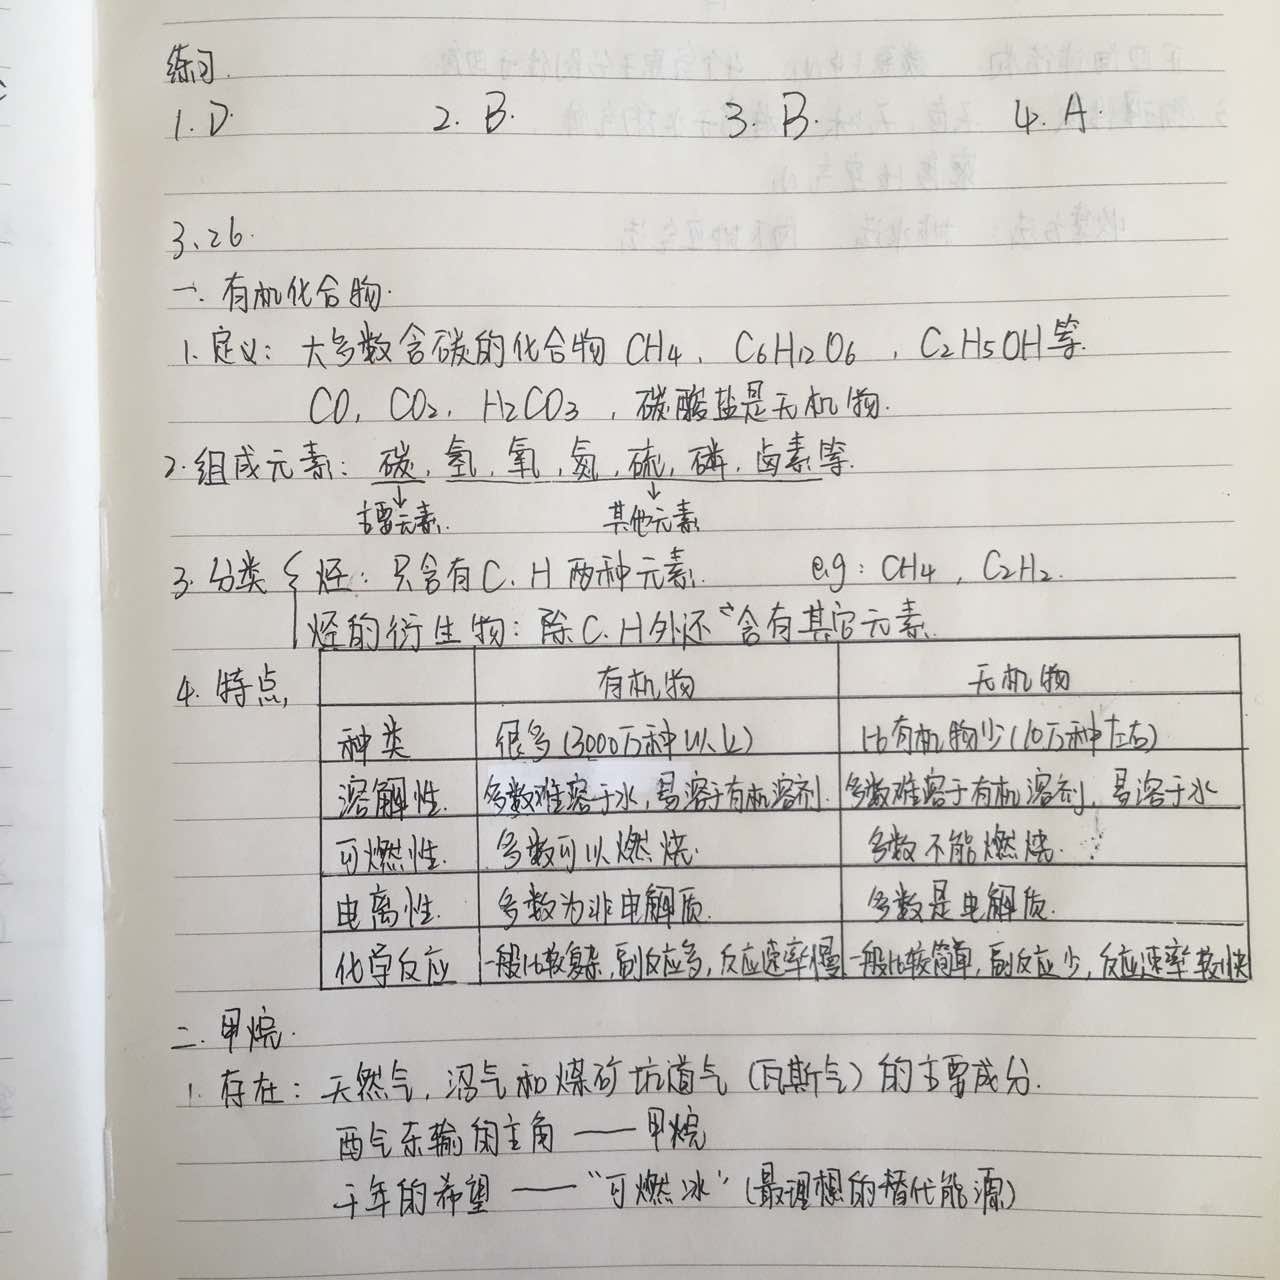 练习.
1. D. 2. B. 3. B. 4. A.
3.26.
一. 有机化合物.
1. 定义: 大多数含碳的化合物 CH4, C6H12O6, C2H5OH等.
CO, CO2, H2CO3, 碳酸盐是无机物.
2. 组成元素: 碳, 氢, 氧, 氮, 硫, 磷, 卤素等.
↓ ↓
主要元素. 其他元素
3. 分类 { 烃: 只含有C. H两种元素. e.g: CH4, C2H2.
烃的衍生物: 除C. H外还含有其它元素.
4. 特点, 有机物 无机物
种类 很多(3000万种以上) 比有机物少(10万种左右)
溶解性. 多数难溶于水, 易溶于有机溶剂. 多数难溶于有机溶剂, 易溶于水
可燃性. 多数可以燃烧. 多数不能燃烧.
电离性. 多数为非电解质. 多数是电解质.
化学反应 一般比较复杂, 副反应多, 反应速率慢 一般比较简单, 副反应少, 反应速率较快
二. 甲烷.
1. 存在: 天然气, 沼气和煤矿坑道气(瓦斯气)的主要成分.
西气东输的主角 —— 甲烷
千年的希望 —— "可燃冰"(最理想的替代能源)